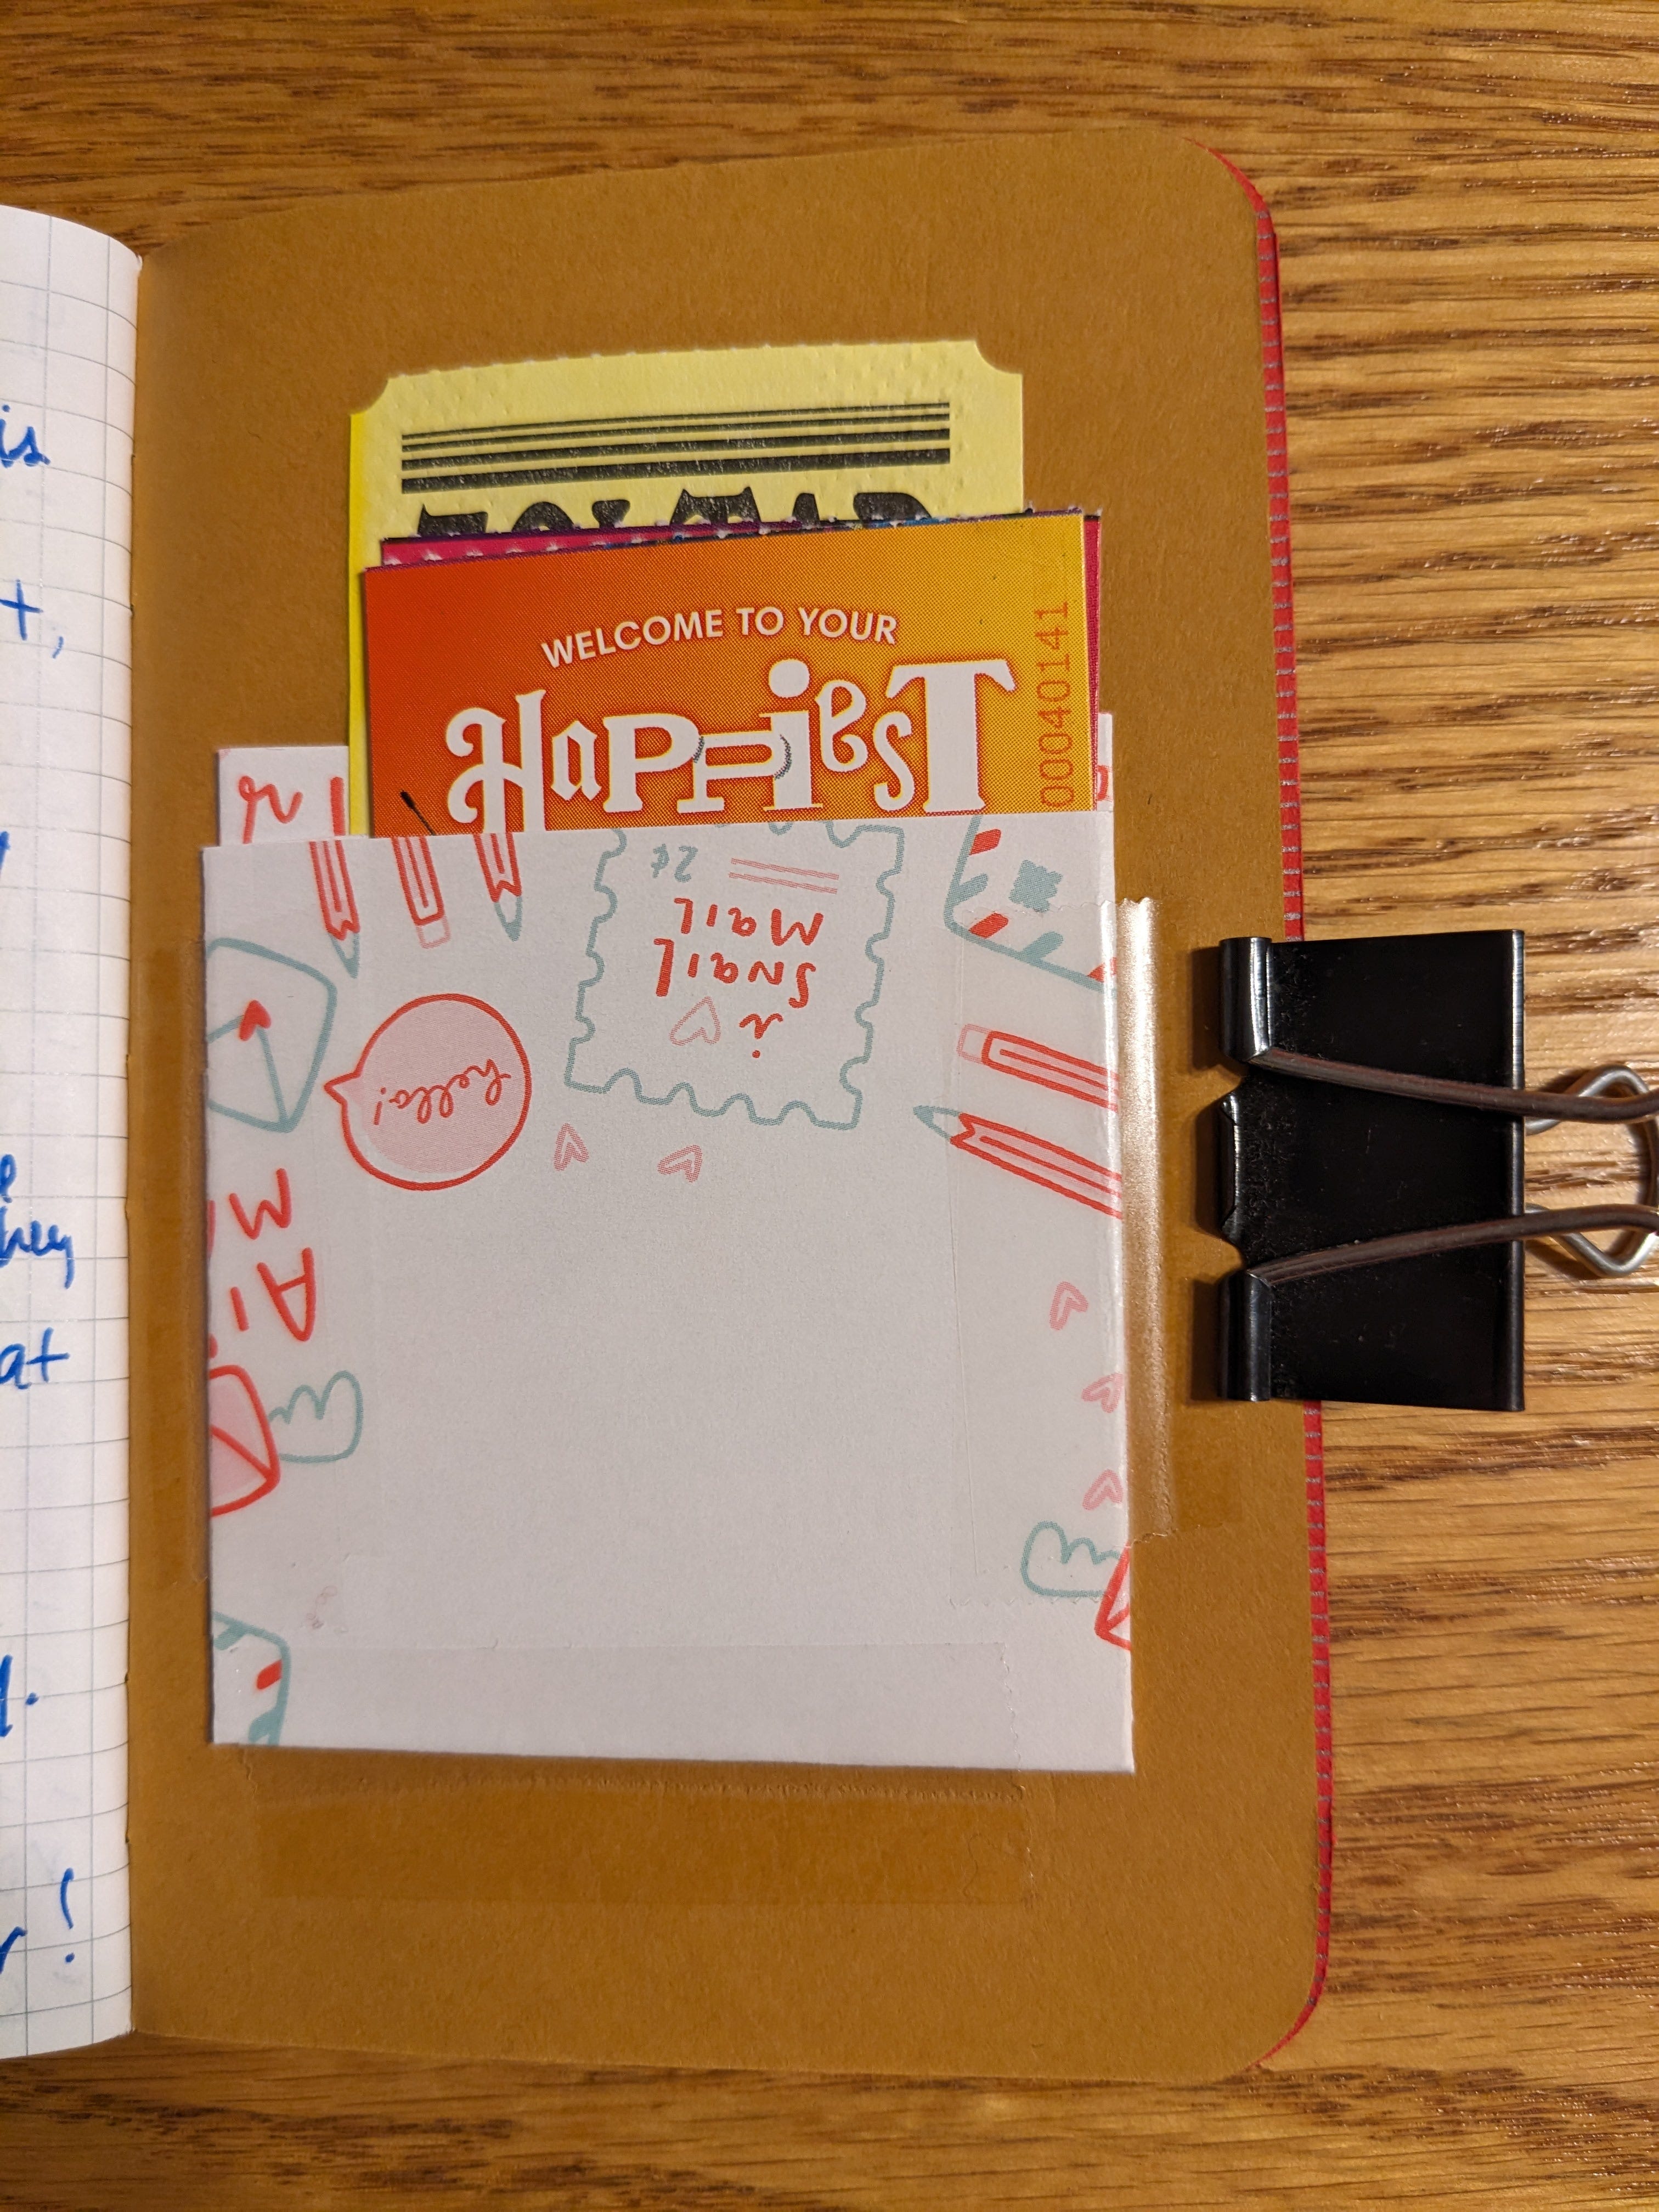 is
t,
hey
at
r!
ZOLTAR
WELCOME TO YOUR
HaPPiesT
00040141
2¢
i
SNaiL
MaiL
hello!
MAI